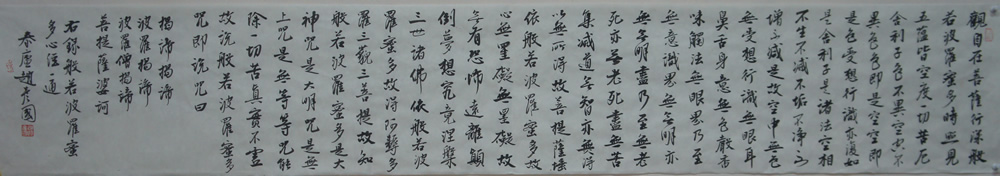 觀自在菩薩行深般
若波羅蜜多時照見
五蘊皆空度一切苦厄
舍利子色不異空空不
異色色即是空空即
是色受想行識亦復如
是舍利子是諸法空相
不生不滅不垢不淨不
增不減是故空中無色
無受想行識無眼耳
鼻舌身意無色聲香
味觸法無眼界乃至
無意識界無無明亦
無無明盡乃至無老
死亦無老死盡無苦
集滅道無智亦無得
以無所得故菩提薩埵
依般若波羅蜜多故
心無罣礙無罣礙故
無有恐怖遠離顛
倒夢想究竟涅槃
三世諸佛依般若波
羅蜜多故得阿耨多
羅三藐三菩提故知
般若波羅蜜多是大
神咒是大明咒是無
上咒是無等等咒能
除一切苦真實不虛
故說般若波羅蜜多
咒即說咒曰
揭諦揭諦
波羅揭諦
波羅僧揭諦
菩提薩婆訶
右錄般若波羅蜜
多心經一通